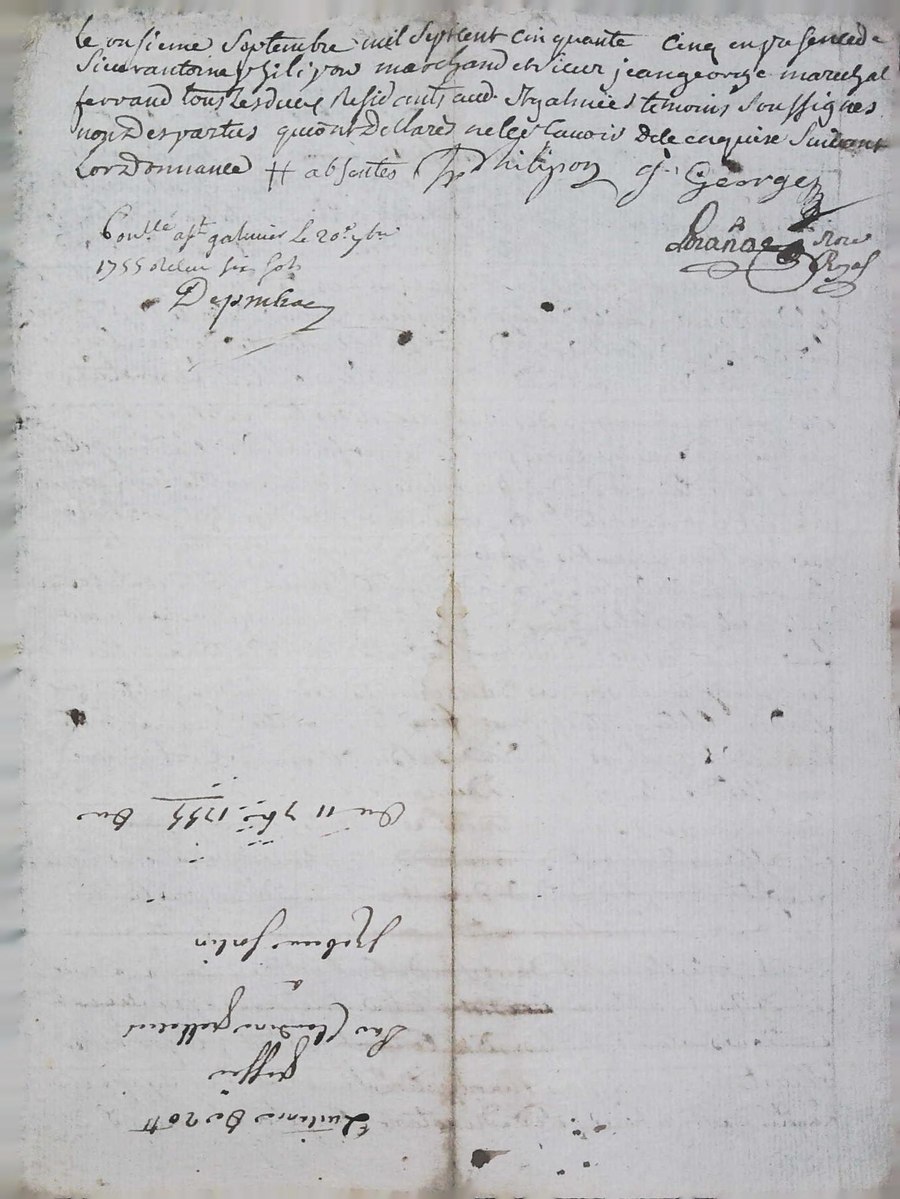 le onsieme Septembre mil Sept cent cinquante cinq en presence de
Sieur antoine philipon marchand et sieur jean george marechal
ferrand tous les deux Residents aud. St galmier temoins Soussignes
non Des parties qui ont Declares ne le scavoir De ce enquise Suivant
Lordonnance # absentes Philipon j. George
Nore
Royal
Con.llé a St galmier Le 20e 7bre
1755 Receu six sols
Du 11 7bre 1755
a
Par Claudine
Quitance De 20 #